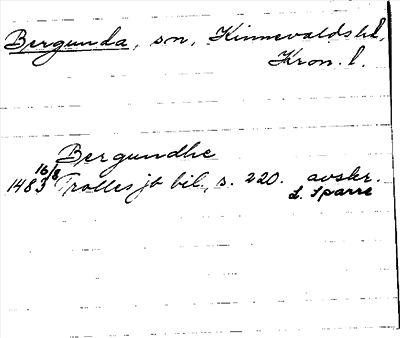 Bergunda, sn, Kinnevalds hd,
Kron. l.
Bergundhe
16/8
1483 Trolles jb bil., s. 220. avskr.
L. Sparre